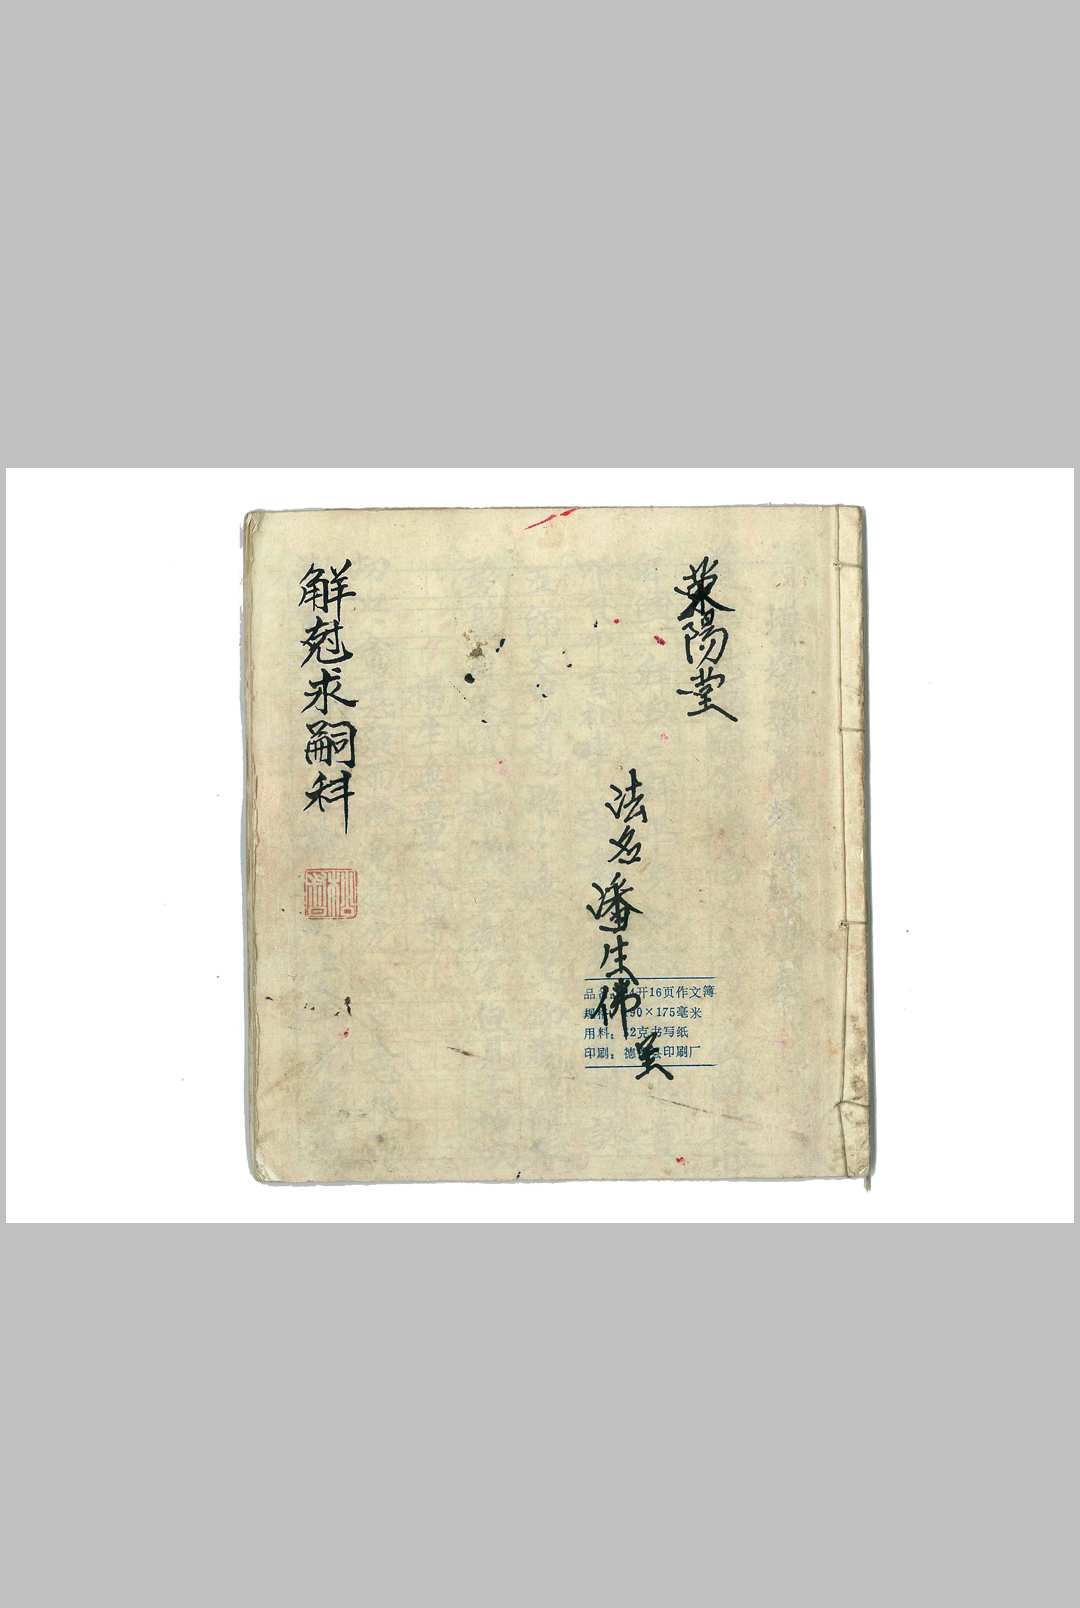 荥陽堂
法名潘生佛
呈
品名：24开16页作文簿
规格：190×175毫米
用料：52克书写纸
印刷：德 县印刷厂
解尅求嗣科